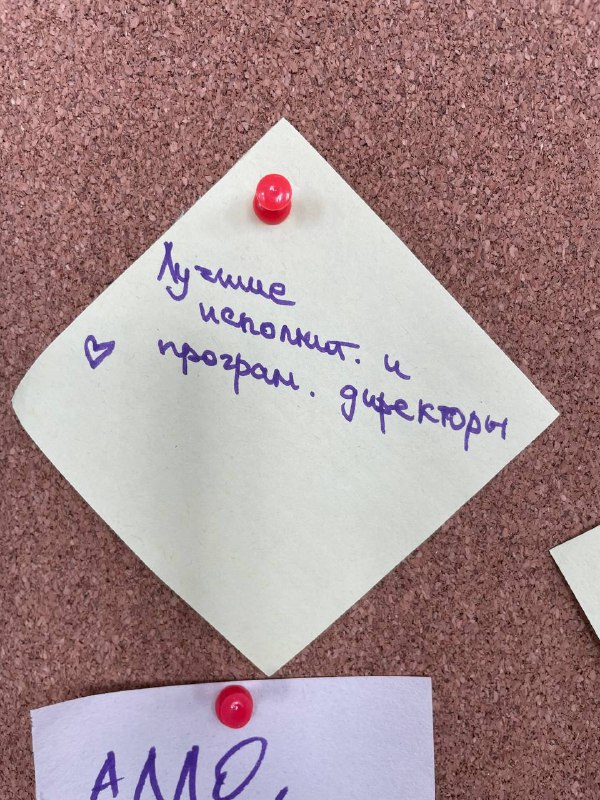 Лучшие
исполнит. и
♡ програм. директоры
АМО,